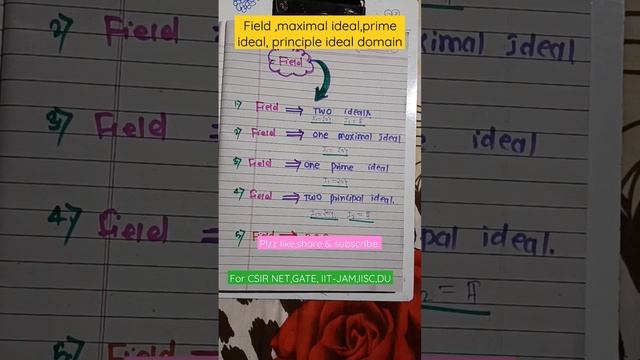 Field ,maximal ideal,prime
ideal, principle ideal domain
Field
1) Field ⇒ Two ideals.
I₁={0} I₂=F
2) Field ⇒ one maximal ideal
I₁={0}
3) Field ⇒ one prime ideal
I₁={0}
4) Field ⇒ Two principal ideal.
I₁={0} I₂=F
5) Field ⇒
Plzz like,share & subscribe
For CSIR NET,GATE, IIT-JAM,IISC,DU
2) Field
ximal Ideal
3) Field
ideal
4) Field
pal ideal.
₂ = F
5)